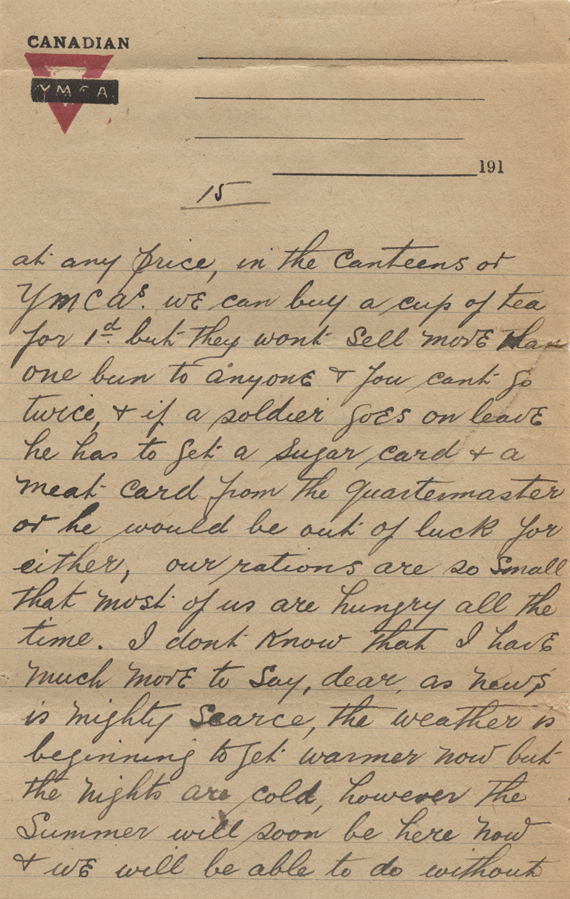 CANADIAN
YMCA
191
15
at any price, in the canteens or
YMCAs. we can buy a cup of tea
for 1d but they wont sell more than
one bun to anyone & you cant go
twice, & if a soldier goes on leave
he has to get a sugar card & a
meat card from the quartermaster
or he would be out of luck for
either, our rations are so small
that most of us are hungry all the
time. I dont know that I have
much more to say, dear, as news
is mighty scarce, the weather is
beginning to get warmer now but
the nights are cold, however the
Summer will soon be here now
& we will be able to do without